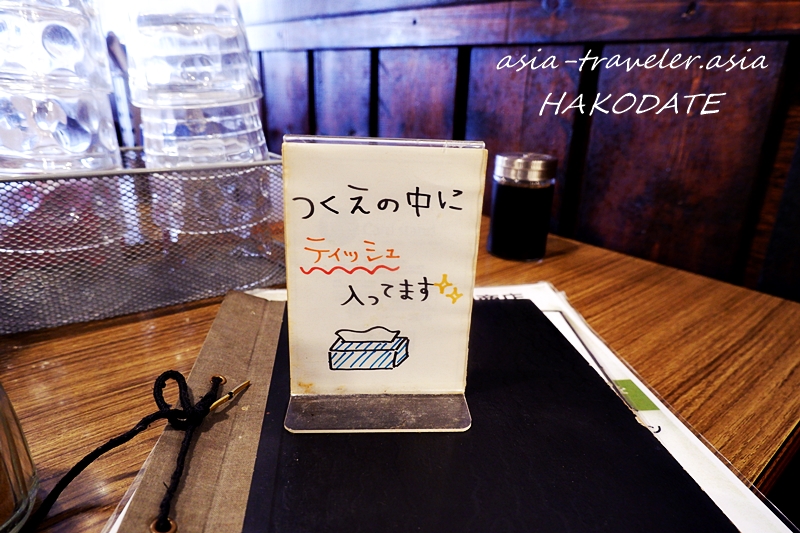 asia-traveler.asia
HAKODATE
つくえの中に
ティッシュ
入ってます